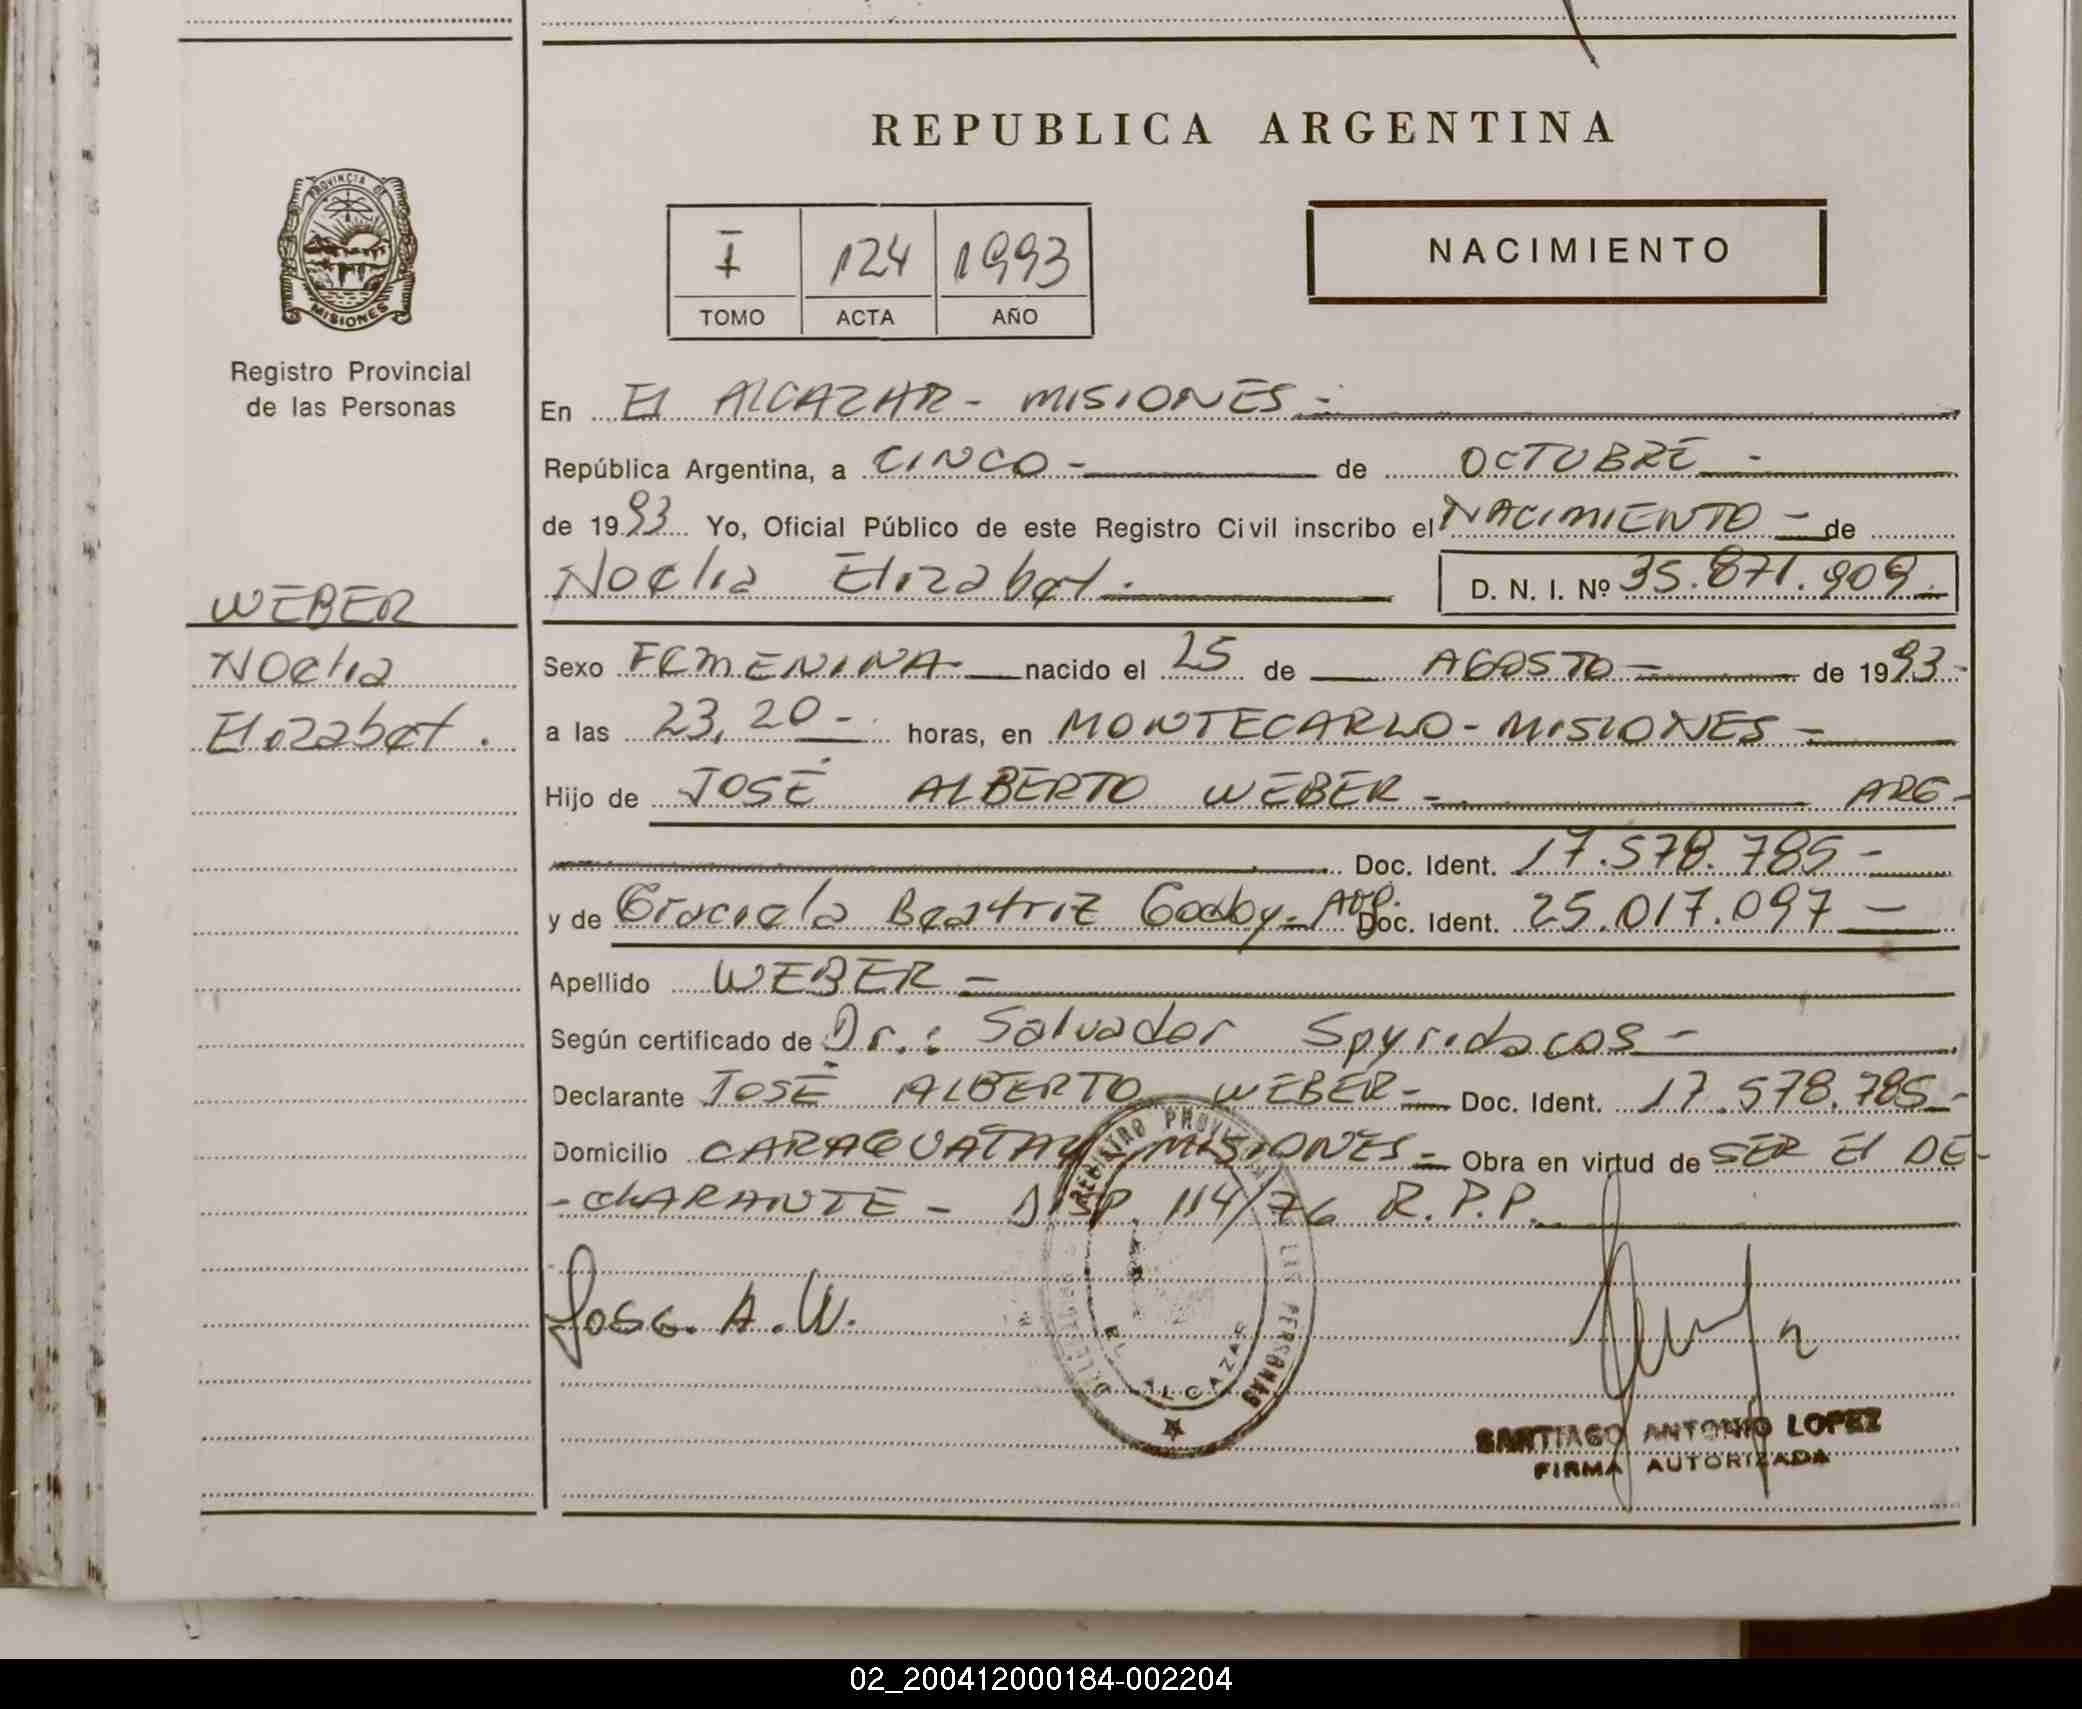 REPUBLICA ARGENTINA
PROVINCIA DE
MISIONES
Registro Provincial
de las Personas
I 124 1993
TOMO ACTA AÑO
NACIMIENTO
En El ALCAZAR - MISIONES -
República Argentina, a CINCO - de OCTUBRE -
de 1993 Yo, Oficial Público de este Registro Civil inscribo el NACIMIENTO - de
Noelia Elizabet. D. N. I. Nº 35.871.909.
WEBER
Noelia
Elizabet.
Sexo FEMENINA - nacido el 25 de AGOSTO - de 1993 -
a las 23,20 - horas, en MONTECARLO - MISIONES -
Hijo de JOSÉ ALBERTO WEBER - ARG -
Doc. Ident. 17.578.785 -
y de Graciela Beatriz Godoy - Arg. Doc. Ident. 25.017.097 -
Apellido WEBER -
Según certificado de Dr.: Salvador Spyridacos -
Declarante JOSÉ ALBERTO WEBER - Doc. Ident. 17.578.785 -
Domicilio CARAGUATAY MISIONES - Obra en virtud de SER El DE-
-ClARANTE - DISP. 114/76 R.P.P.
Jose. A. W.
REGISTRO PROVINCIAL LAS PERSONAS
EL ALCAZAR
SANTIAGO ANTONIO LOPEZ
FIRMA AUTORIZADA
02_200412000184-002204